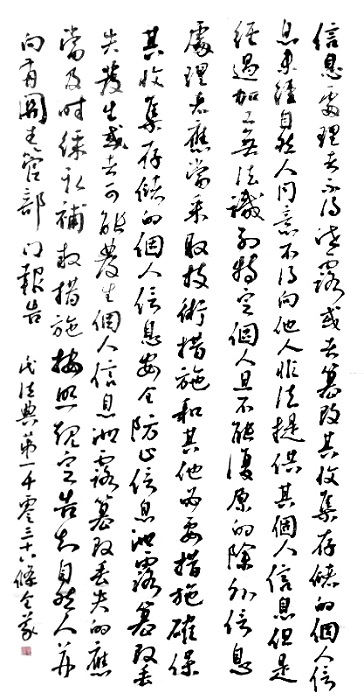 信息處理者不得泄露或者篡改其收集存儲的個人信
息未經自然人同意不得向他人非法提供其個人信息但是
經過加工無法識別特定個人且不能復原的除外信息
處理者應當采取技術措施和其他必要措施確保
其收集存儲的個人信息安全防止信息泄露篡改丟
失發生或者可能發生個人信息泄露篡改丟失的應
當及時采取補救措施按照規定告知自然人并
向有關主管部門報告 民法典第一千零三十八條